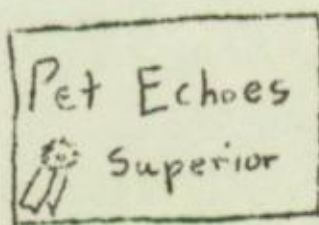 Pet Echoes
Superior